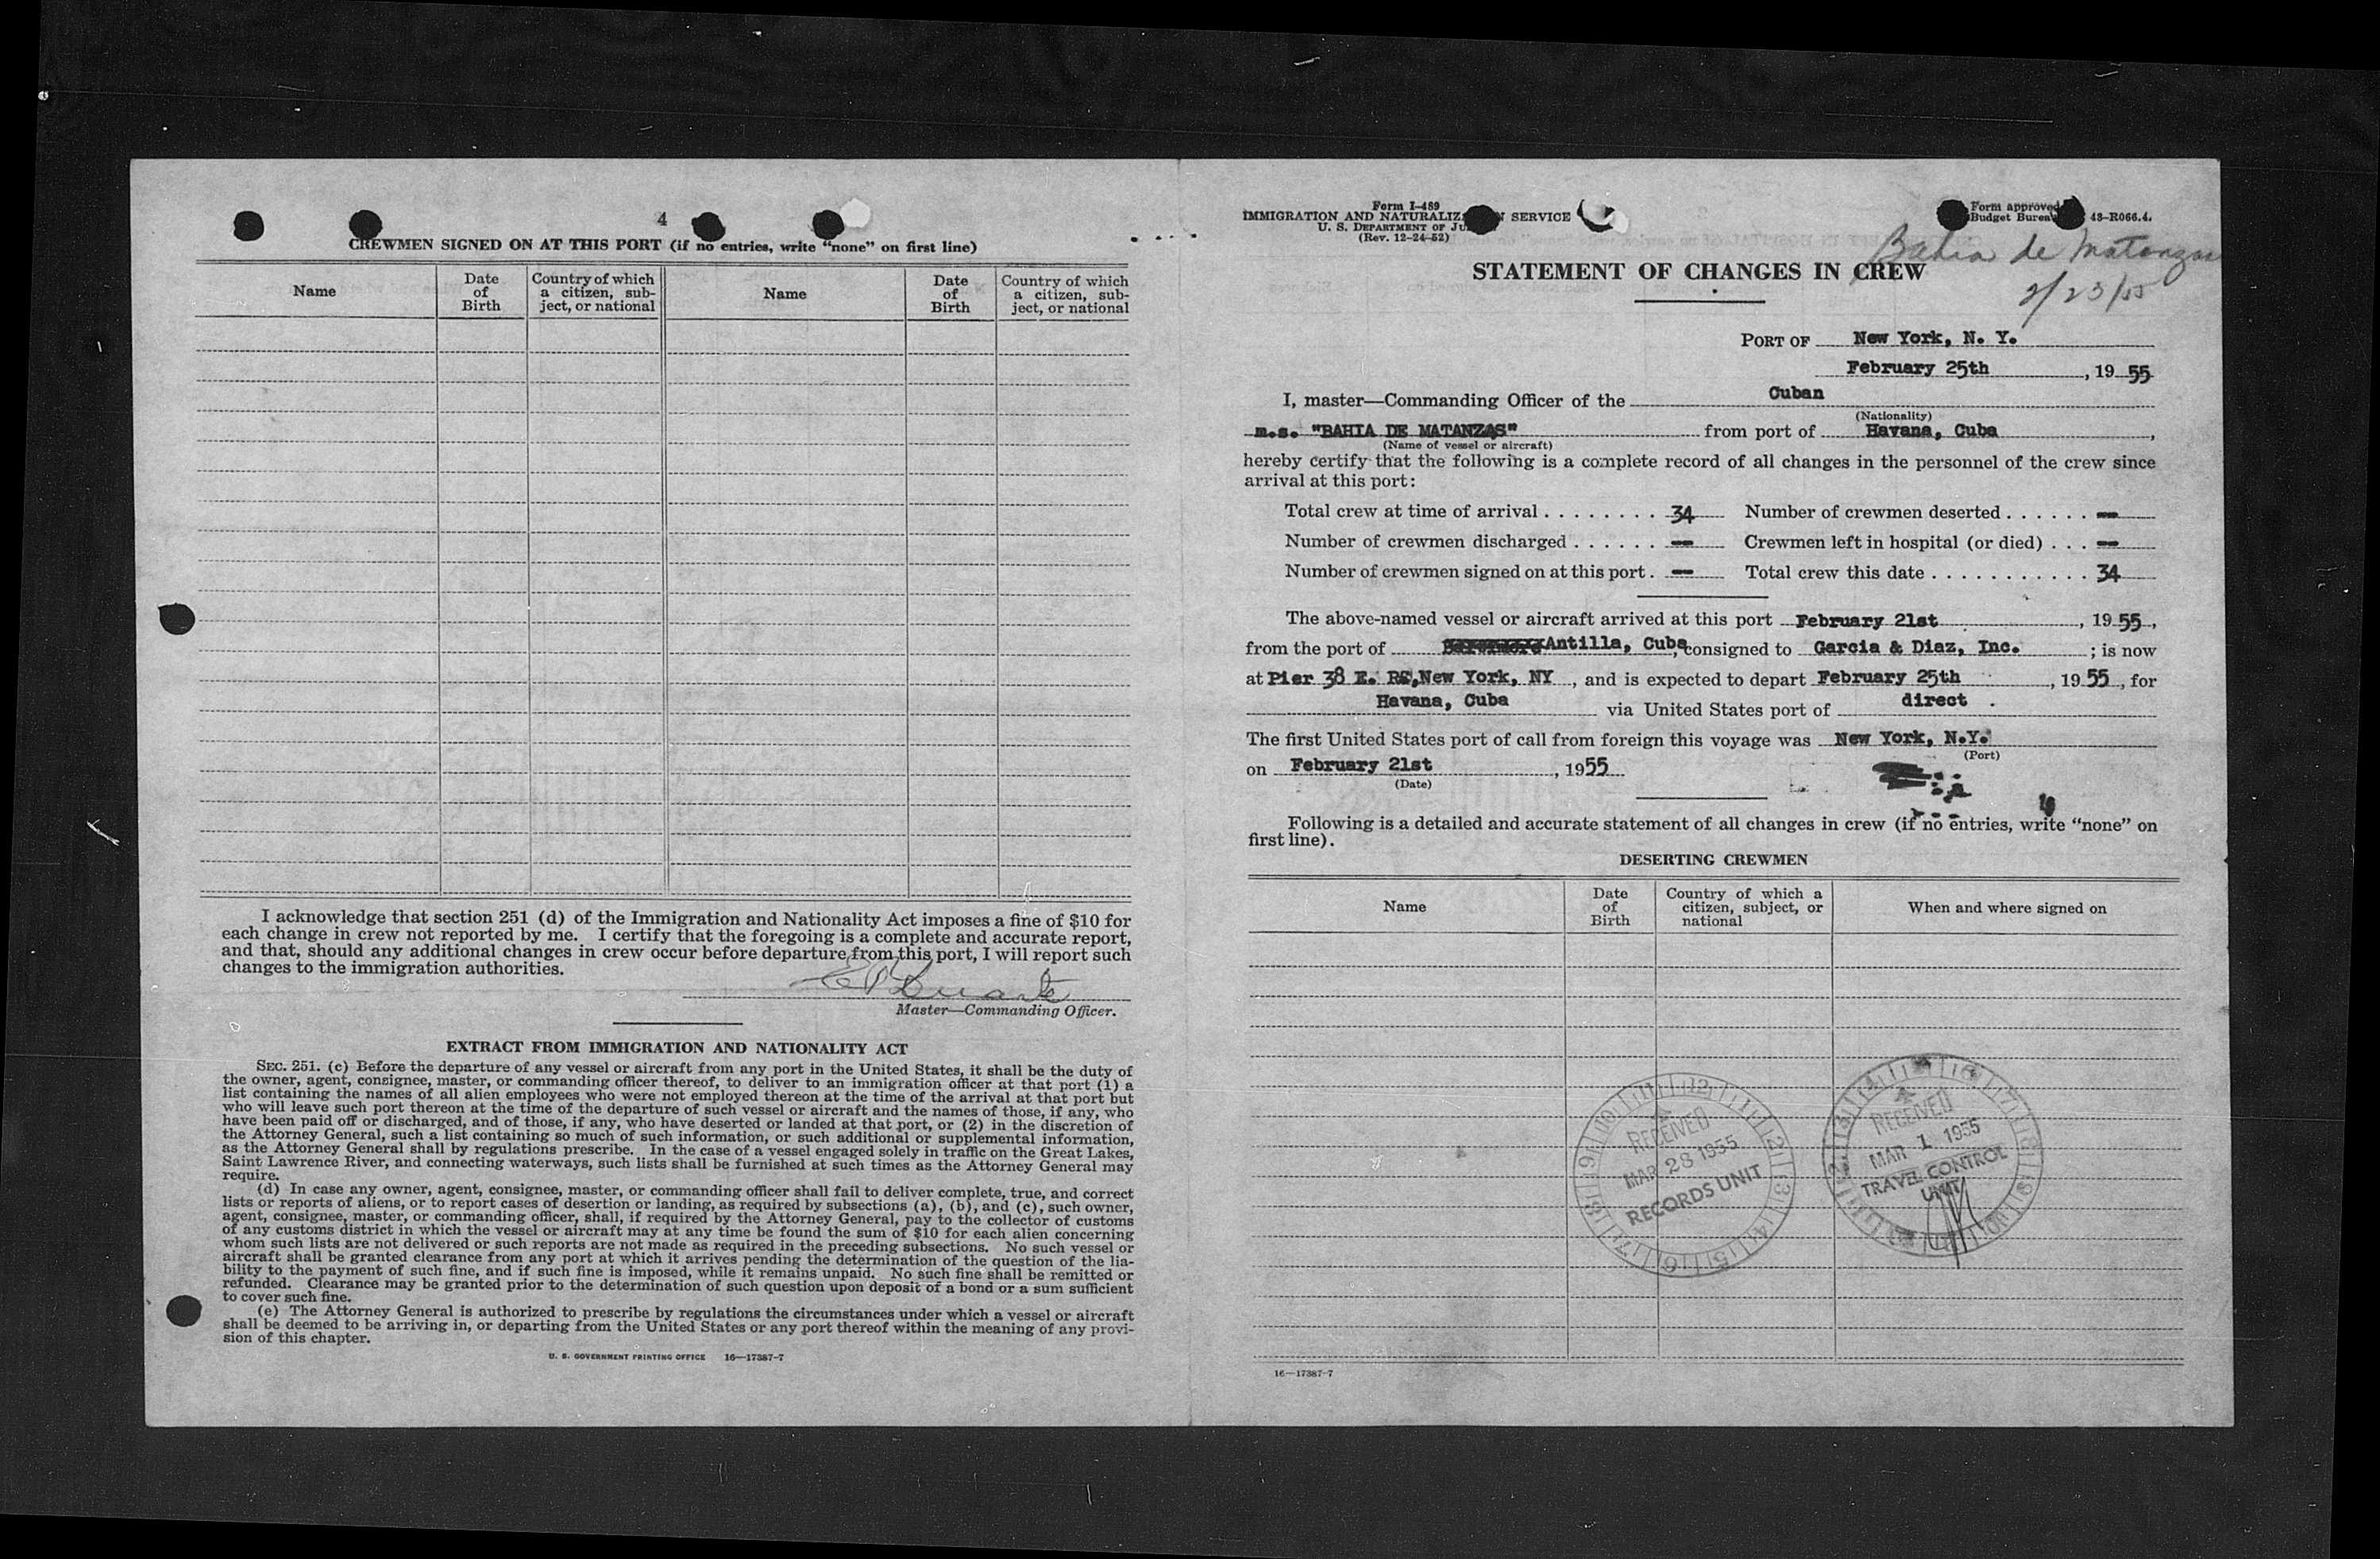 4
CREWMEN SIGNED ON AT THIS PORT (if no entries, write "none" on first line)
Name
Date
of
Birth
Country of which
a citizen, sub-
ject, or national
Name
Date
of
Birth
Country of which
a citizen, sub-
ject, or national
I acknowledge that section 251 (d) of the Immigration and Nationality Act imposes a fine of $10 for
each change in crew not reported by me. I certify that the foregoing is a complete and accurate report,
and that, should any additional changes in crew occur before departure from this port, I will report such
changes to the immigration authorities.
Duarte
Master—Commanding Officer.
EXTRACT FROM IMMIGRATION AND NATIONALITY ACT
SEC. 251. (c) Before the departure of any vessel or aircraft from any port in the United States, it shall be the duty of
the owner, agent, consignee, master, or commanding officer thereof, to deliver to an immigration officer at that port (1) a
list containing the names of all alien employees who were not employed thereon at the time of the arrival at that port but
who will leave such port thereon at the time of the departure of such vessel or aircraft and the names of those, if any, who
have been paid off or discharged, and of those, if any, who have deserted or landed at that port, or (2) in the discretion of
the Attorney General, such a list containing so much of such information, or such additional or supplemental information,
as the Attorney General shall by regulations prescribe. In the case of a vessel engaged solely in traffic on the Great Lakes,
Saint Lawrence River, and connecting waterways, such lists shall be furnished at such times as the Attorney General may
require.
(d) In case any owner, agent, consignee, master, or commanding officer shall fail to deliver complete, true, and correct
lists or reports of aliens, or to report cases of desertion or landing, as required by subsections (a), (b), and (c), such owner,
agent, consignee, master, or commanding officer, shall, if required by the Attorney General, pay to the collector of customs
of any customs district in which the vessel or aircraft may at any time be found the sum of $10 for each alien concerning
whom such lists are not delivered or such reports are not made as required in the preceding subsections. No such vessel or
aircraft shall be granted clearance from any port at which it arrives pending the determination of the question of the lia-
bility to the payment of such fine, and if such fine is imposed, while it remains unpaid. No such fine shall be remitted or
refunded. Clearance may be granted prior to the determination of such question upon deposit of a bond or a sum sufficient
to cover such fine.
(e) The Attorney General is authorized to prescribe by regulations the circumstances under which a vessel or aircraft
shall be deemed to be arriving in, or departing from the United States or any port thereof within the meaning of any provi-
sion of this chapter.
U. S. GOVERNMENT PRINTING OFFICE 16—17387-7
Form I-489
IMMIGRATION AND NATURALIZ N SERVICE
U. S. DEPARTMENT OF JU
(Rev. 12-24-52)
Form approved
Budget Burea 43-R066.4.
Bahia de Matanzas
2/23/55
STATEMENT OF CHANGES IN CREW
PORT OF New York, N. Y.
February 25th, 19 55
I, master—Commanding Officer of the Cuban
(Nationality)
m.s. "BAHIA DE MATANZAS" from port of Havana, Cuba,
(Name of vessel or aircraft)
hereby certify that the following is a complete record of all changes in the personnel of the crew since
arrival at this port:
Total crew at time of arrival . . . . . . . . 34 Number of crewmen deserted . . . . . . --
Number of crewmen discharged . . . . . . -- Crewmen left in hospital (or died) . . . --
Number of crewmen signed on at this port . -- Total crew this date . . . . . . . . . . . 34
The above-named vessel or aircraft arrived at this port February 21st, 19 55,
from the port of Antilla, Cuba, consigned to Garcia & Diaz, Inc. ; is now
at Pier 38 E. R., New York, NY, and is expected to depart February 25th, 19 55, for
Havana, Cuba via United States port of direct .
The first United States port of call from foreign this voyage was New York, N.Y.
(Port)
on February 21st, 1955
(Date)
Following is a detailed and accurate statement of all changes in crew (if no entries, write "none" on
first line).
DESERTING CREWMEN
Name
Date
of
Birth
Country of which a
citizen, subject, or
national
When and where signed on
RECEIVED
MAR 28 1955
RECORDS UNIT
RECEIVED
MAR 1 1955
TRAVEL CONTROL
UNIT
16—17387-7